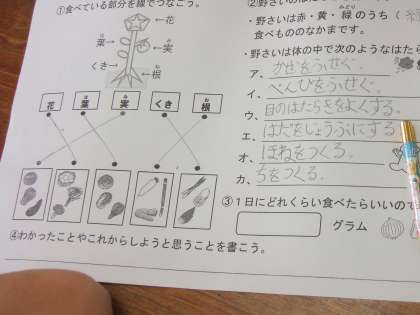 ①食べている部分を線でつなごう。
←花
葉→
は
←実
み
くき→
←根
ね
花 葉 実 くき 根
は み ね
④わかったことやこれからしようと思うことを書こう。
・野さいは赤・黄・緑のうち（
みどり
食べもののなかまです。
・野さいは体の中で次のようなはたら
ア、かぜをふせぐ。
イ、べんぴをふせぐ。
ウ、目のはたらきをよくする。
エ、はだをじょうぶにする
オ、ほねをつくる。
カ、ちをつくる。
③１日にどれくらい食べたらいいので
グラム